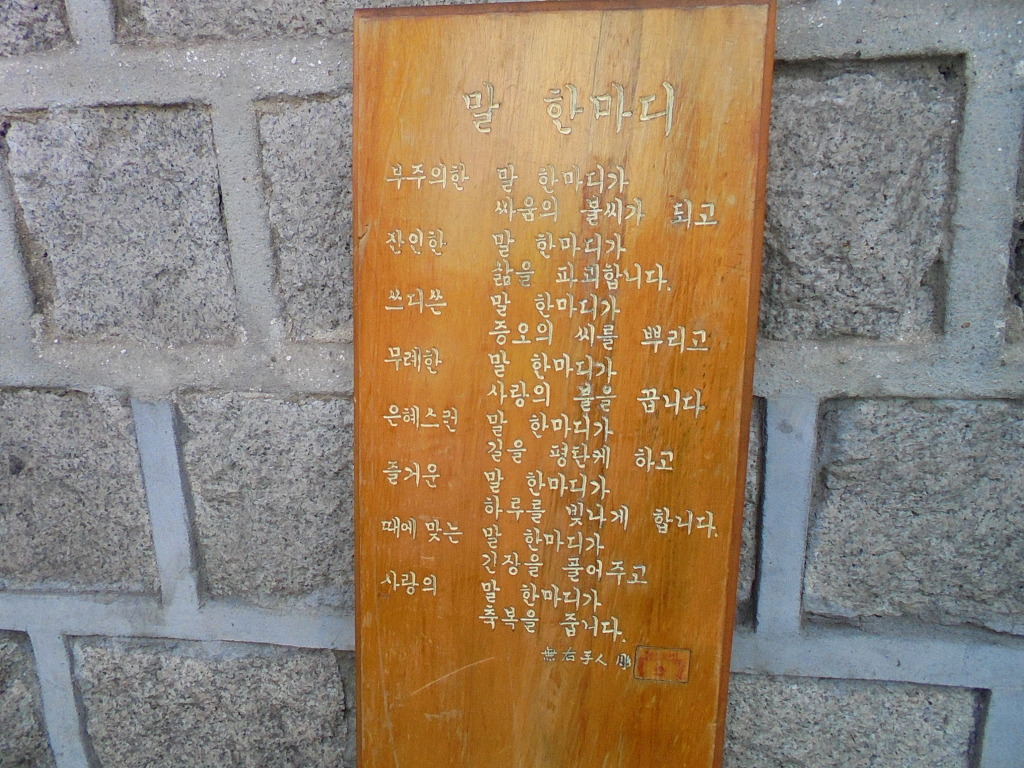 말 한마디
부주의한 말 한마디가
싸움의 불씨가 되고
잔인한 말 한마디가
삶을 파괴합니다.
쓰디쓴 말 한마디가
증오의 씨를 뿌리고
무례한 말 한마디가
사랑의 불을 끕니다
은혜스런 말 한마디가
길을 평탄케 하고
즐거운 말 한마디가
하루를 빛나게 합니다.
때에 맞는 말 한마디가
긴장을 풀어주고
사랑의 말 한마디가
축복을 줍니다.
無右手人 彫